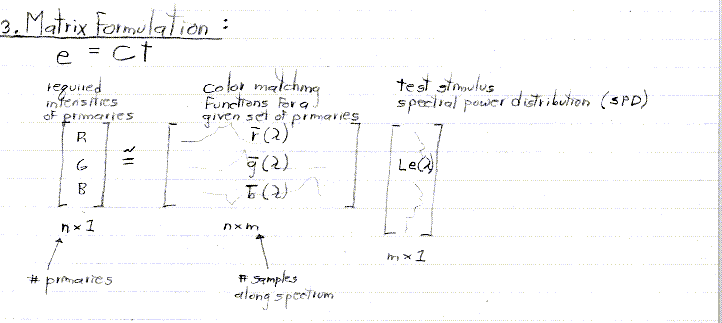 3. Matrix Formulation :
e = Ct
required intensities of primaries
color matching functions for a given set of primaries
test stimulus spectral power distribution (SPD)
R
G
B
≅
r̄(λ)
ḡ(λ)
b̄(λ)
Le(λ)
n×1
n×m
m×1
# primaries
# samples along spectrum